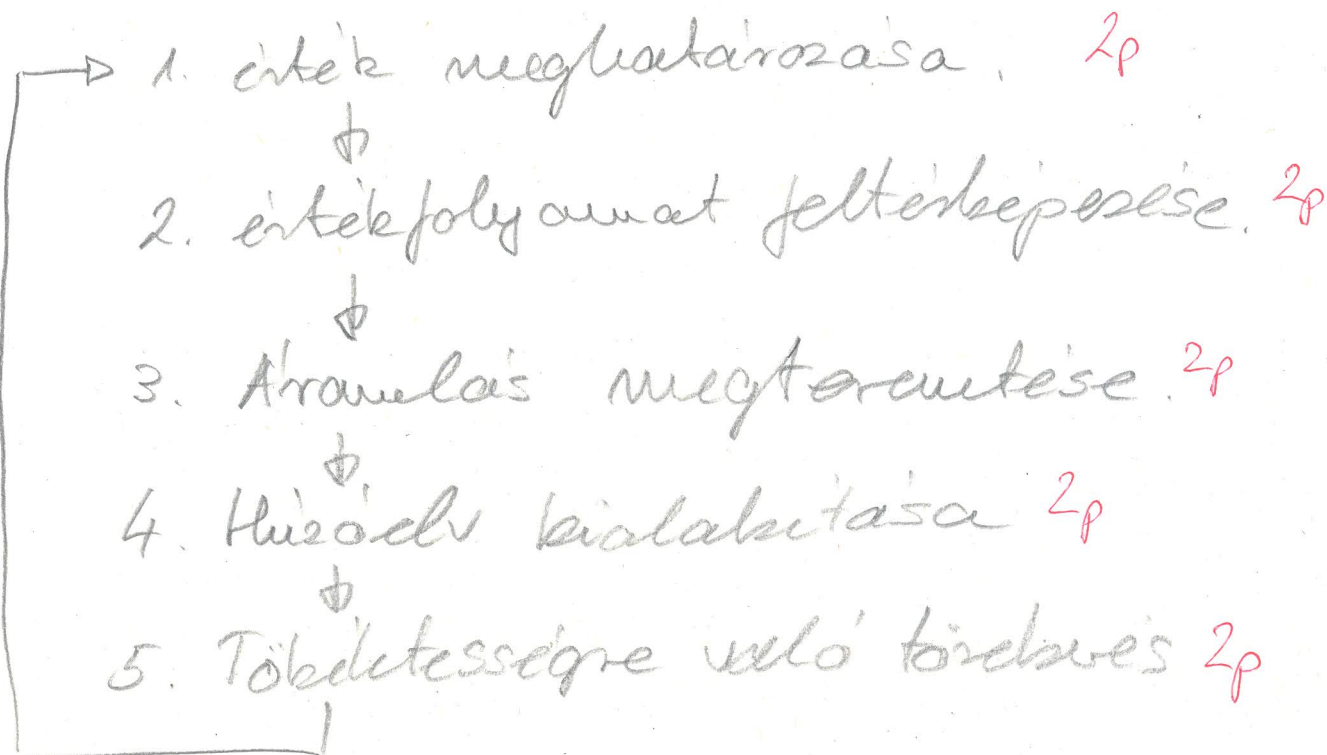 1. érték meghatározása. 2p
2. értékfolyamat feltérképezése. 2p
3. Áramlás megteremtése. 2p
4. Húzóelv kialakítása 2p
5. Tökéletességre való törekvés 2p